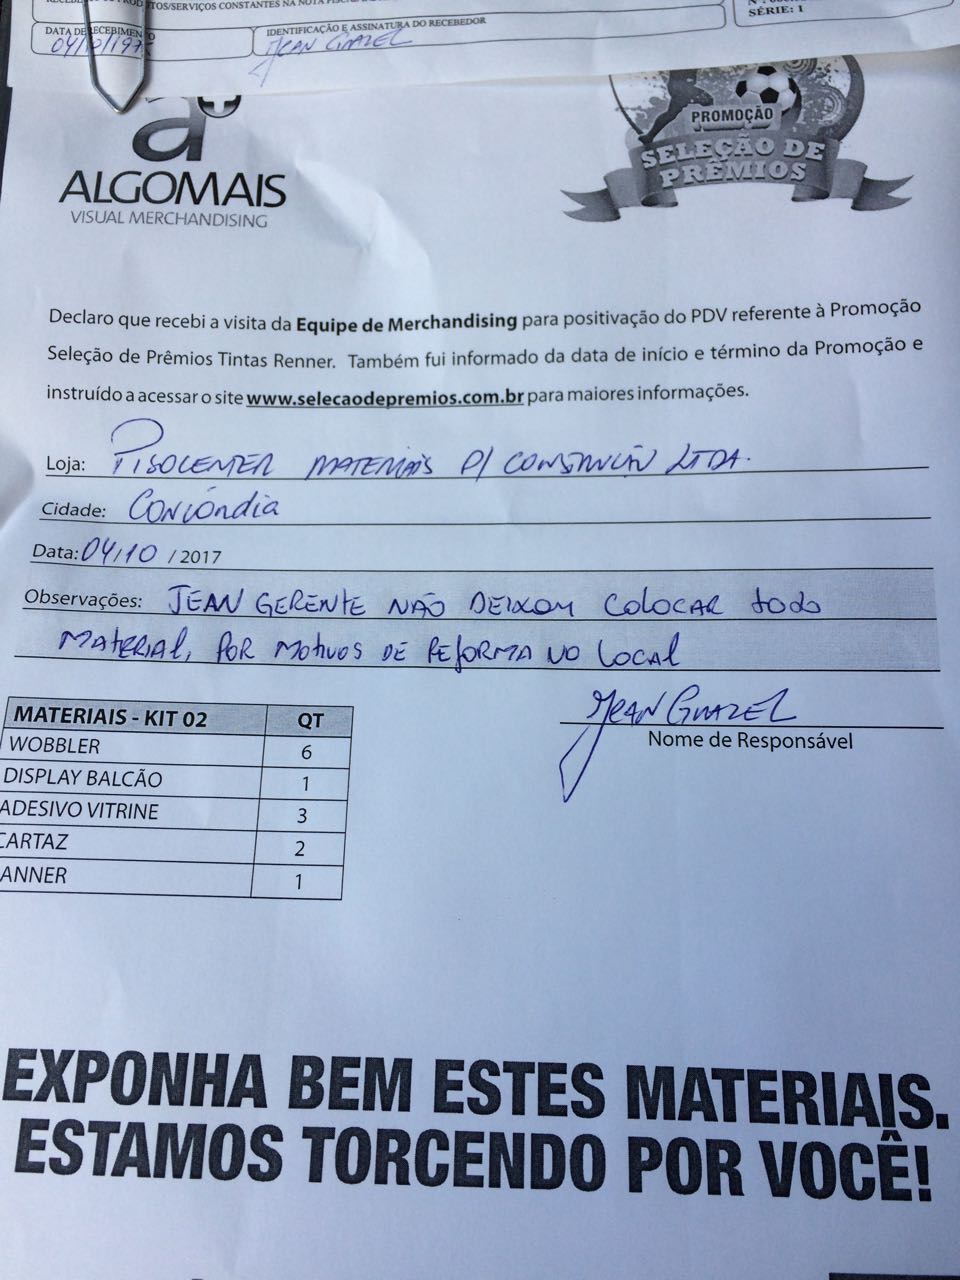 TOS/SERVIÇOS CONSTANTES NA NOTA
SÉRIE: 1
DATA DE RECEBIMENTO
IDENTIFICAÇÃO E ASSINATURA DO RECEBEDOR
04/10/197
JEAN GUAREL
a+
ALGOMAIS
VISUAL MERCHANDISING
PROMOÇÃO
SELEÇÃO DE
PRÊMIOS
Declaro que recebi a visita da Equipe de Merchandising para positivação do PDV referente à Promoção
Seleção de Prêmios Tintas Renner. Também fui informado da data de início e término da Promoção e
instruído a acessar o site www.selecaodepremios.com.br para maiores informações.
Loja: PISOCENTER MATERIAIS P/ CONSTRUÇÃO LTDA.
Cidade: Concórdia
Data: 04/10 / 2017
Observações: JEAN GERENTE NÃO DEIXOU COLOCAR todo
MATERIAL, POR MOTIVOS DE REFORMA NO LOCAL
JEAN GUAREL
Nome de Responsável
MATERIAIS - KIT 02 QT
WOBBLER 6
DISPLAY BALCÃO 1
ADESIVO VITRINE 3
CARTAZ 2
ANNER 1
EXPONHA BEM ESTES MATERIAIS.
ESTAMOS TORCENDO POR VOCÊ!